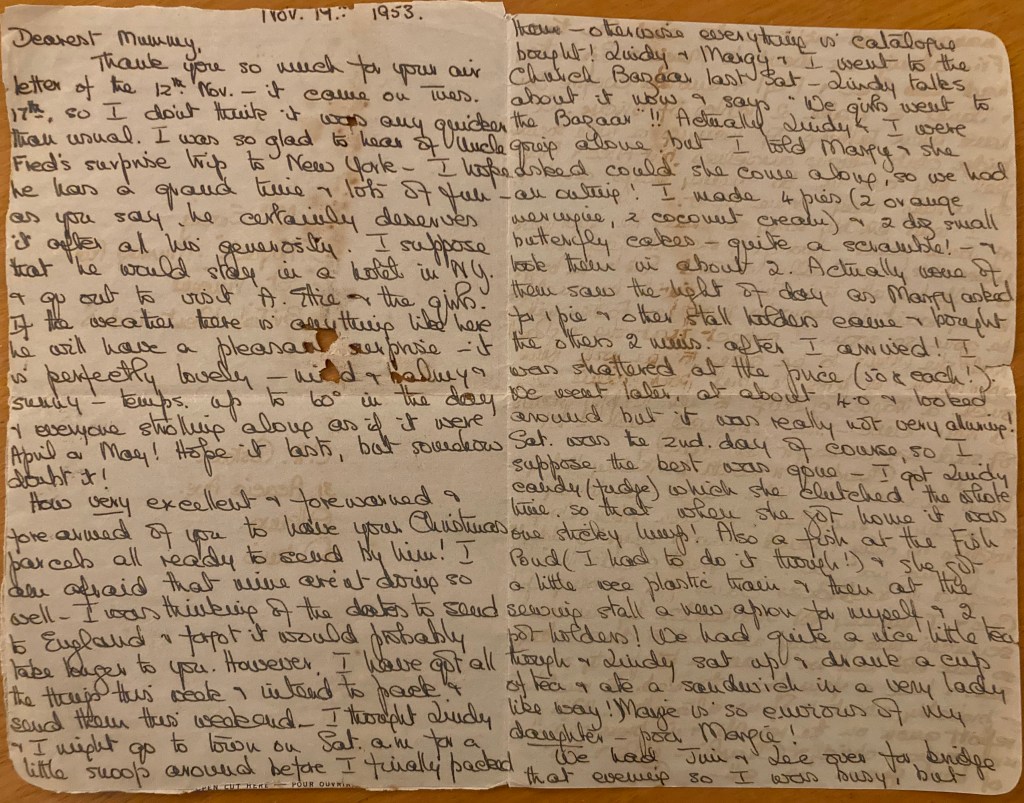 Nov. 19th 1953.
Dearest Mummy,
Thank you so much for your air
letter of the 12th Nov. – it came on Tues.
17th, so I don't think it was any quicker
than usual. I was so glad to hear of Uncle
Fred's surprise trip to New York – I hope
he has a grand time & lots of fun –
as you say, he certainly deserves
it after all his generosity. I suppose
that he would stay in a hotel in N.Y.
& go out to visit A. & the girls.
If the weather there is anything like here
he will have a pleasant surprise – it
is perfectly lovely – mild & balmy &
sunny – temps. up to 60° in the day
& everyone strolling along as if it were
April or May! Hope it lasts, but somehow
doubt it!
How very excellent & forewarned &
forearmed of you to have your Christmas
parcels all ready to send by him! I
am afraid that mine aren't doing so
well – I was thinking of the dates to send
to England & forgot it would probably
take longer to you. However, I have got all
the things this week & intend to pack &
send them this weekend – I thought Lindy
& I might go to town on Sat. a.m. for a
little snoop around before I finally packed
CUT HERE — POUR OUVRIR
them – otherwise everything is catalogue
bought! Lindy & Margy & I went to the
Church Bazaar last Sat – Lindy talks
about it now & says "We girls went to
the Bazaar"!! Actually Lindy & I were
going alone but I told Margy & she
asked could she come along, so we had
an outing! I made 4 pies (2 orange
meringue, 2 coconut cream) & 2 doz small
butterfly cakes – quite a scramble! – &
took them in about 2. Actually none of
them saw the light of day as Margy asked
for 1 pie & other stall holders came & bought
the others 2 mins. after I arrived! I
was shattered at the price (50¢ each!)
We went later, at about 4.0 & looked
around but it was really not very alluring!
Sat. was the 2nd. day of course, so I
suppose the best was gone – I got Lindy
candy (fudge) which she clutched the whole
time, so that when she got home it was
one sticky lump! Also a fish at the Fish
Pond (I had to do it though!) & she got
a little wee plastic train & then at the
sewing stall a new apron for myself & 2
pot holders! We had quite a nice little tea
though & Lindy sat up & drank a cup
of tea & ate a sandwich in a very lady
like way! Margie is so envious of my
daughter – poor Margie!
We had Jim & Lee over for bridge
that evening so I was busy, but